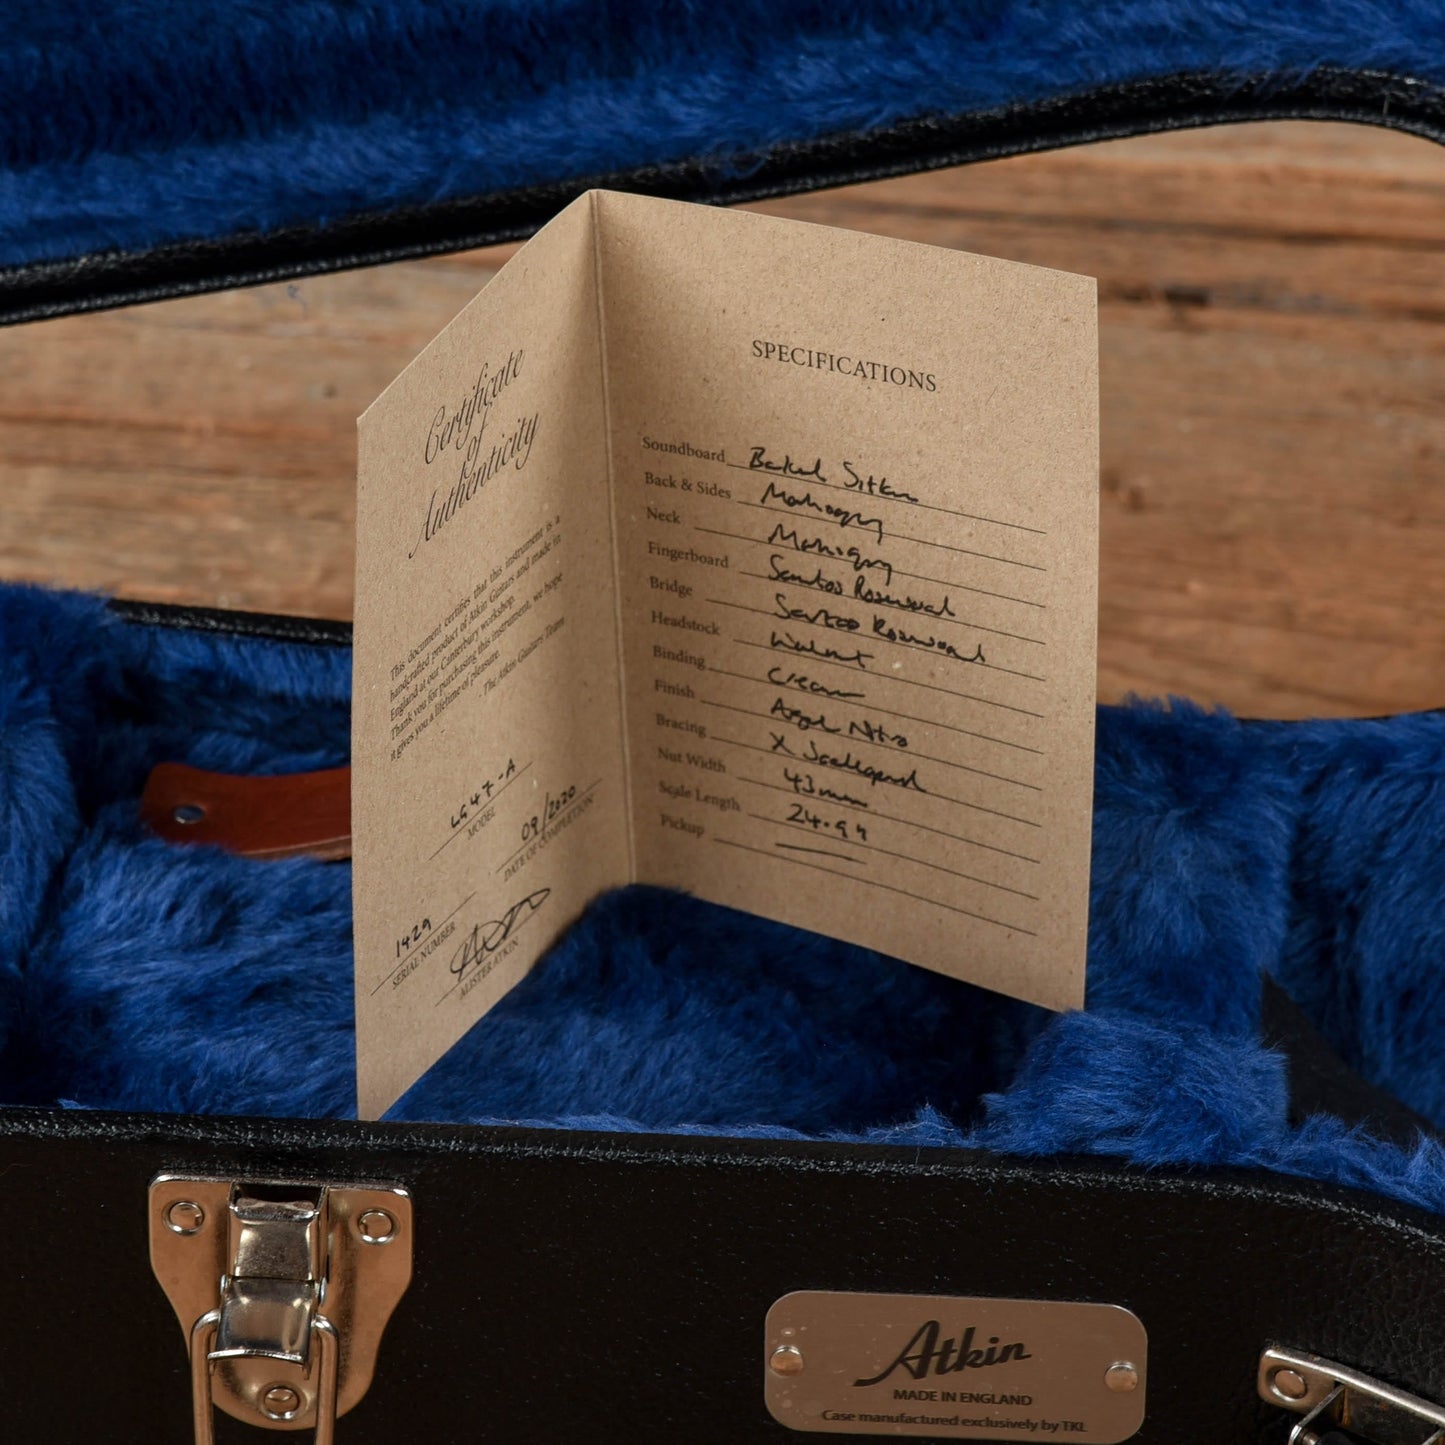 Certificate
of
Authenticity
This document certifies that this instrument is a
handcrafted product of Atkin Guitars and made in
England at our Canterbury workshop.
Thank you for purchasing this instrument, we hope
it gives you a lifetime of pleasure.
. The Atkin Guitars Team
LG47-A
MODEL
09/2020
DATE OF COMPLETION
1429
SERIAL NUMBER
ALISTER ATKIN
SPECIFICATIONS
Soundboard Baked Sitka
Back & Sides Mahogany
Neck Mahogany
Fingerboard Santos Rosewood
Bridge Santos Rosewood
Headstock Walnut
Binding Cream
Finish Aged Nitro
Bracing X Scalloped
Nut Width 43mm
Scale Length 24.9"
Pickup
Atkin
MADE IN ENGLAND
Case manufactured exclusively by TKL